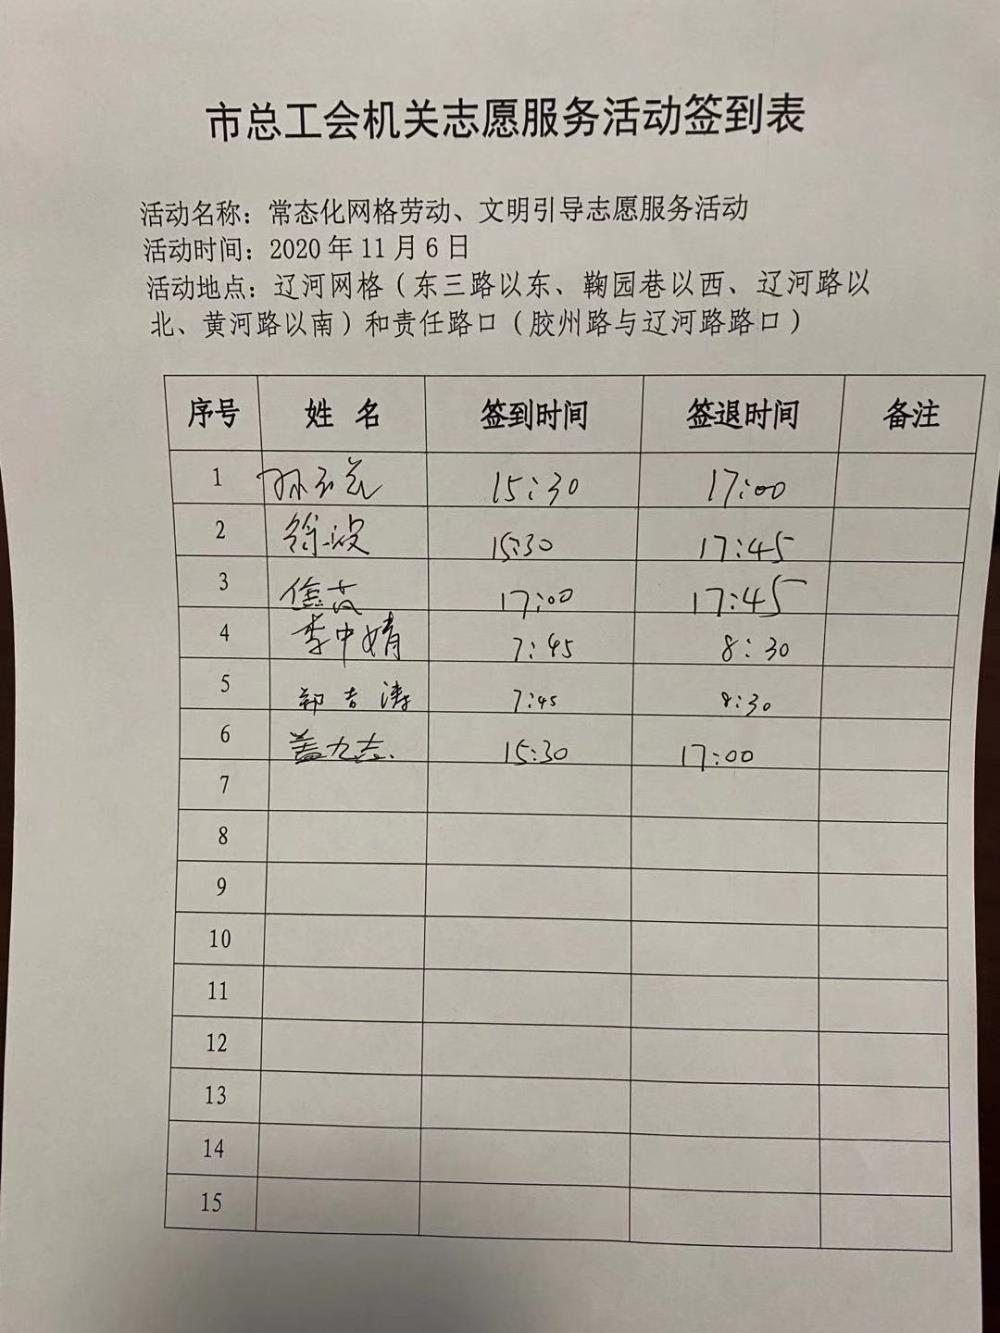 市总工会机关志愿服务活动签到表
活动名称：常态化网格劳动、文明引导志愿服务活动
活动时间：2020年11月6日
活动地点：辽河网格（东三路以东、鞠园巷以西、辽河路以
北、黄河路以南）和责任路口（胶州路与辽河路路口）
序号 姓 名 签到时间 签退时间 备注
1 15:30 17:00
2 徐波 15:30 17:45
3 17:00 17:45
4 李中婧 7:45 8:30
5 郭吉涛 7:45 8:30
6 盖九志 15:30 17:00
7
8
9
10
11
12
13
14
15